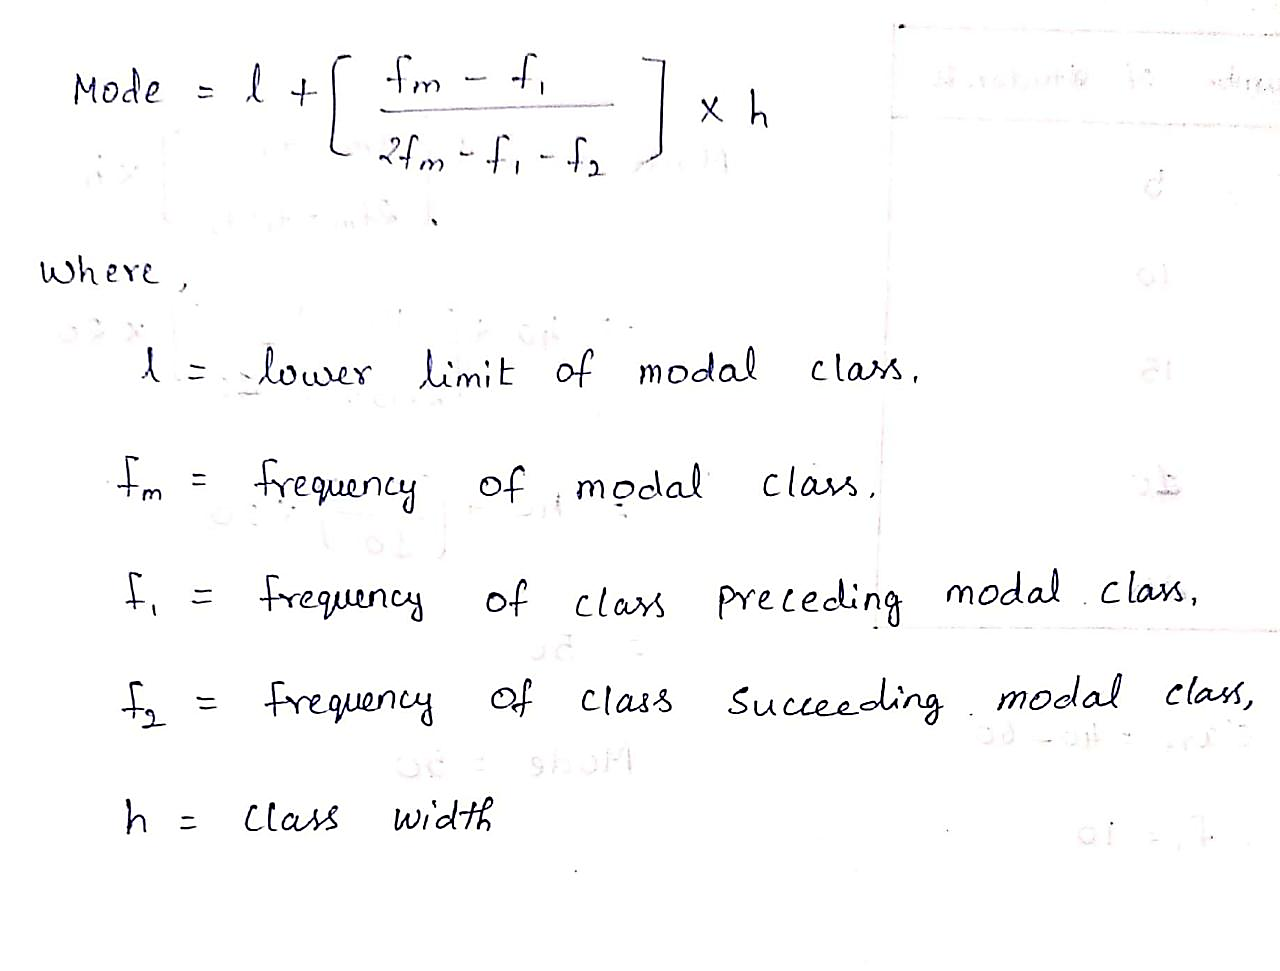 Mode = l + [ fm - f1 / 2fm - f1 - f2 ] x h
Where,
l = lower limit of modal class.
fm = frequency of modal class.
f1 = frequency of class preceding modal class,
f2 = frequency of class Succeeding modal class,
h = Class width